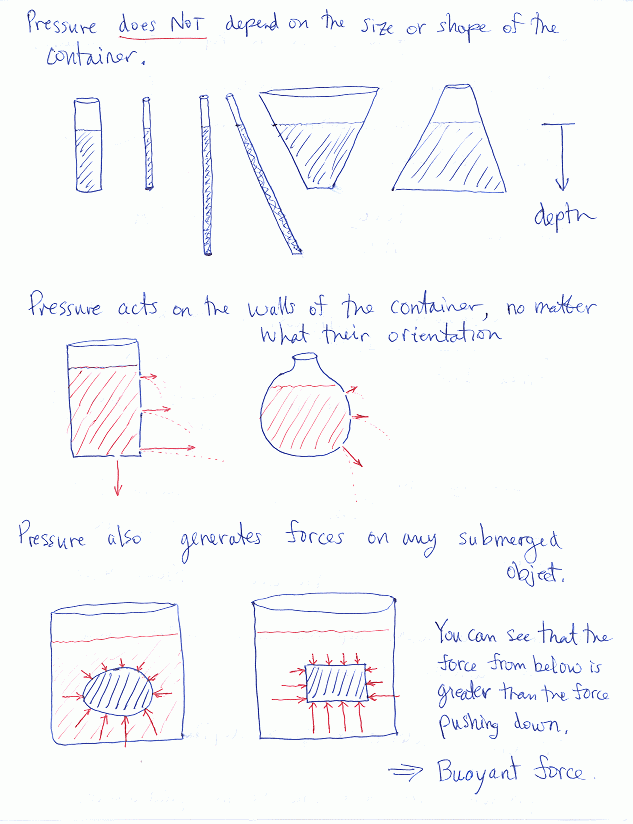 Pressure does NOT depend on the size or shape of the
container.
depth
Pressure acts on the walls of the container, no matter
what their orientation
Pressure also generates forces on any submerged
object.
You can see that the
force from below is
greater than the force
pushing down.
⇒ Buoyant force.